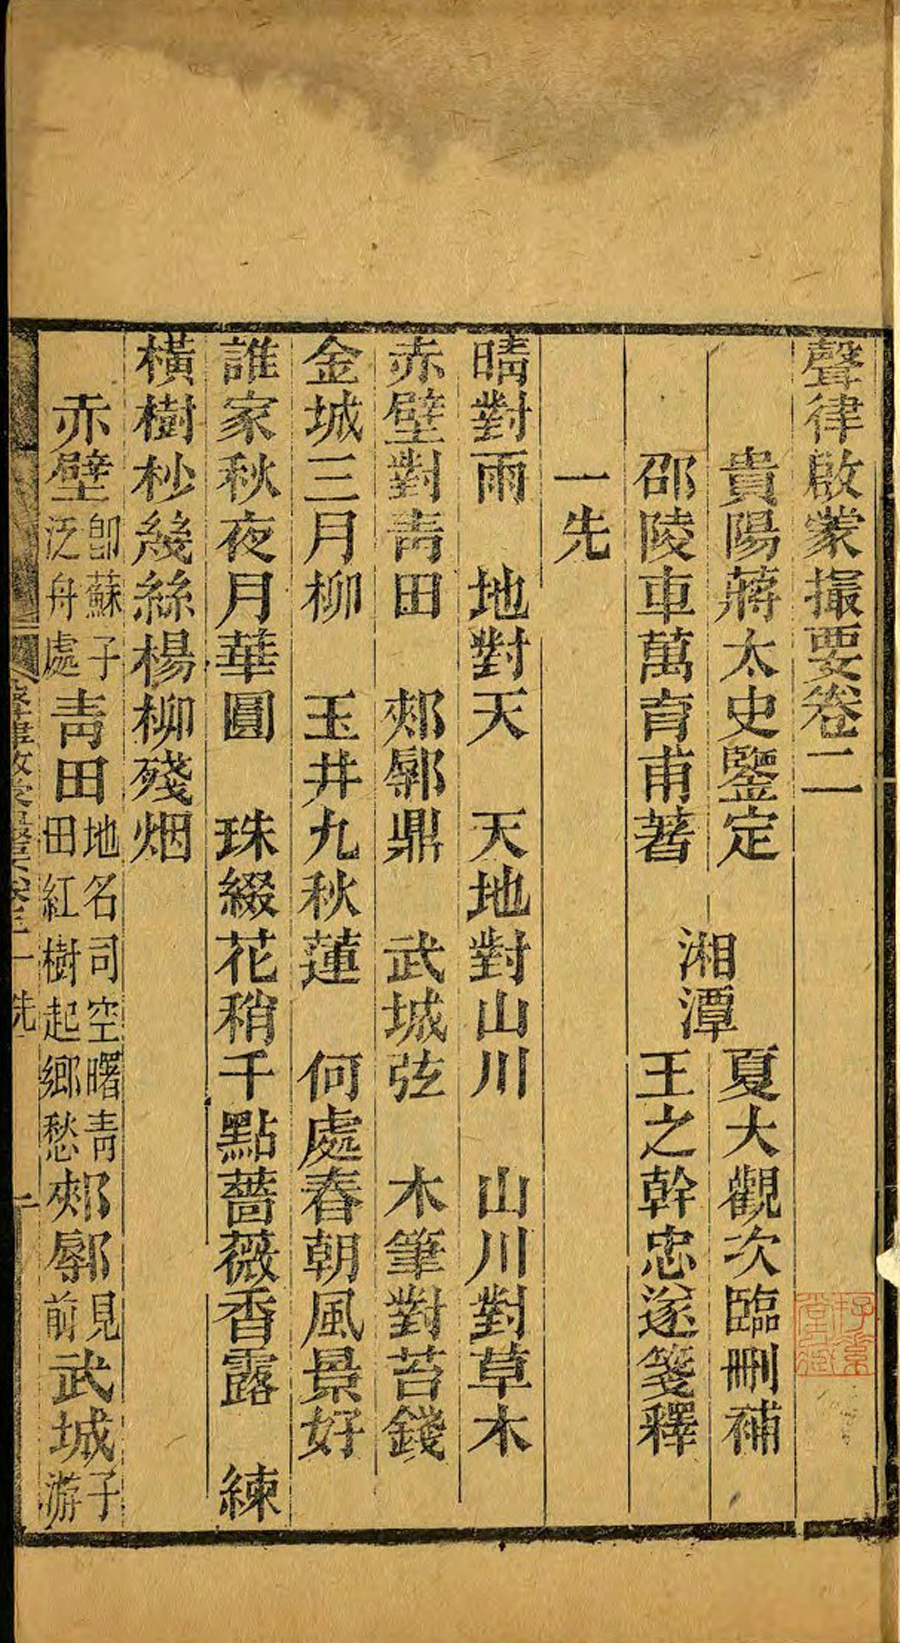 聲律啟蒙撮要卷二
貴陽蔣太史鑒定　湘潭　夏大觀次臨刪補
邵陵車萬育甫著　王之幹忠遂箋釋
一先
晴對雨　地對天　天地對山川　山川對草木
赤壁對青田　郟鄏鼎　武城弦　木筆對苔錢
金城三月柳　玉井九秋蓮　何處春朝風景好
誰家秋夜月華圓　珠綴花稍千點薔薇香露　練
橫樹杪幾絲楊柳殘烟
赤壁卽蘇子泛舟處青田地名司空曙青田紅樹起鄉愁郟鄏見前武城子游